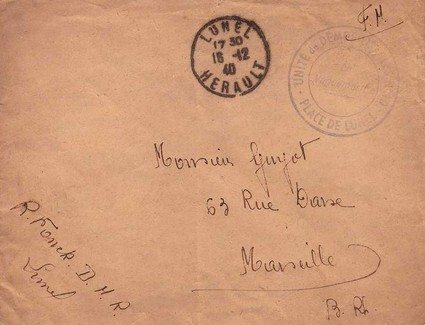 F.M.
LUNEL
17 30
16 -12
40
HERAULT
UNITÉ DE DÉM
PLACE DE LUNEL
Monsieur Guyot
63 Rue Darse
Marseille
B. Rh.
R. Fonck. D.M.R.
Lunel